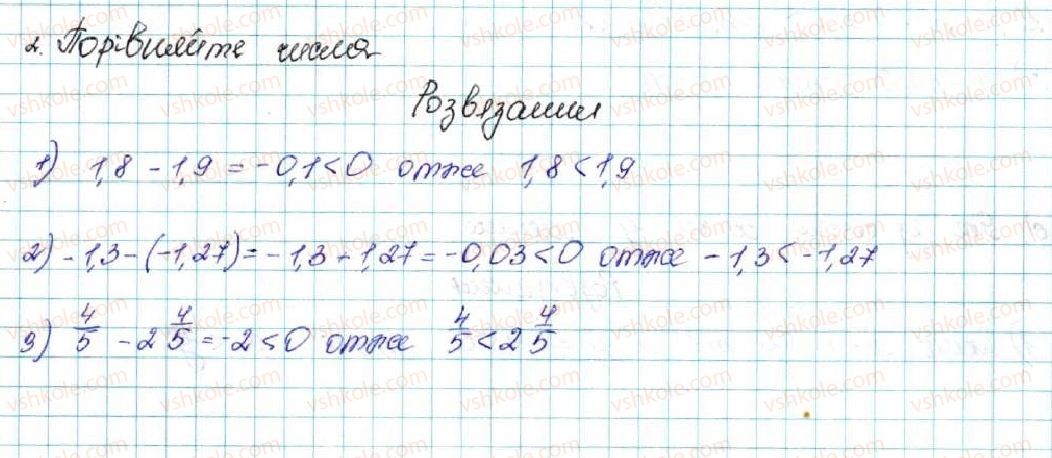 2. Порівняйте числа
Розвязання
1) 1,8 - 1,9 = -0,1 < 0 отже 1,8 < 1,9
2) -1,3 - (-1,27) = -1,3 + 1,27 = -0,03 < 0 отже -1,3 < -1,27
3) 4/5 - 2 4/5 = -2 < 0 отже 4/5 < 2 4/5